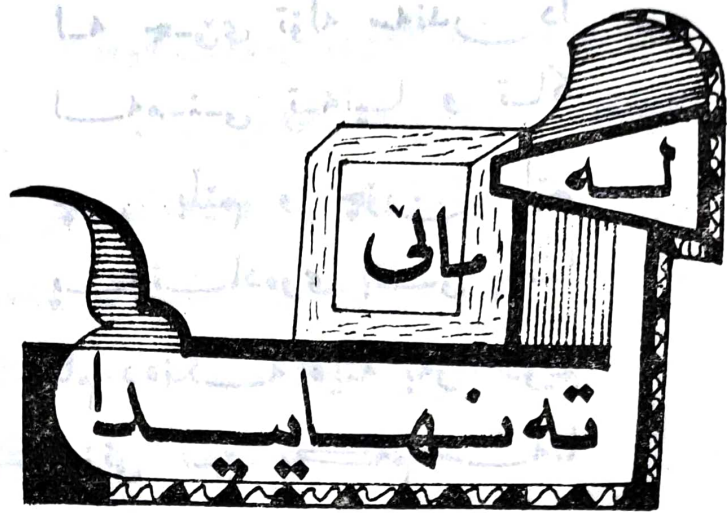 لە
ماڵی
تەنهاییدا